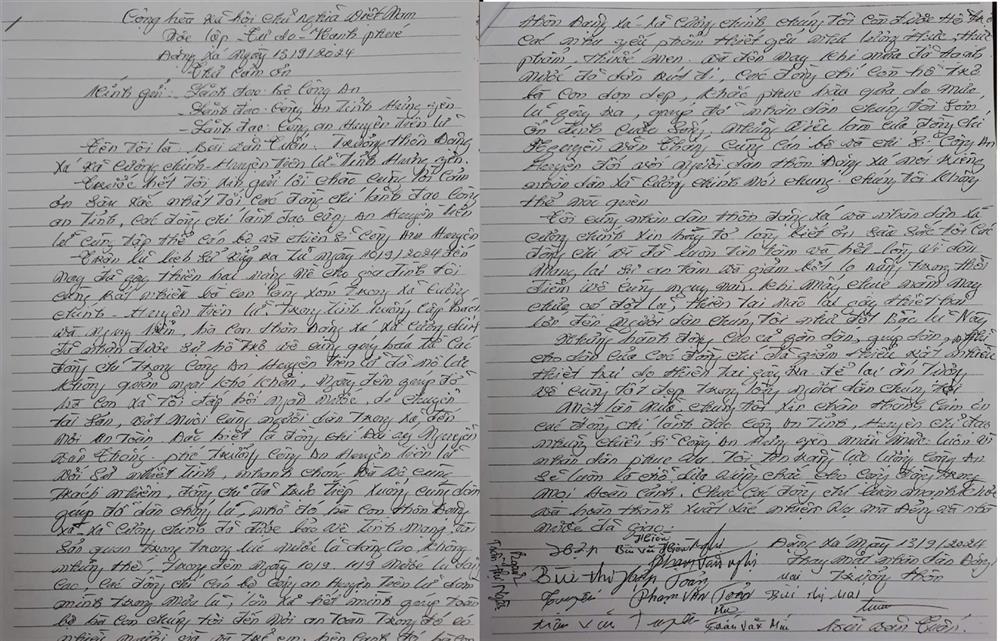 Cộng hòa xã hội chủ nghĩa Việt Nam
Độc lập - Tự do - Hạnh phúc
Đồng Xá ngày 13/9/2024
Thư cảm ơn
Kính gửi: - Lãnh đạo Bộ Công An
- Lãnh đạo Công An Tỉnh Hưng Yên
- Lãnh đạo Công an Huyện Tiên Lữ
Tên tôi là Bùi Xuân Tuấn. Trưởng thôn Đồng
Xá xã Cương Chính - Huyện Tiên Lữ Tỉnh Hưng Yên.
Trước hết tôi xin gửi lời chào cùng lời cảm
ơn sâu sắc nhất tới các đồng chí lãnh đạo Công
an Tỉnh, các đồng chí lãnh đạo Công An Huyện Tiên
Lữ cùng tập thể cán bộ và chiến sĩ Công An Huyện
Trận lũ lịch sử xảy ra từ ngày 10/9/2024 đến
nay đã gây thiệt hại nặng nề cho gia đình tôi
cùng rất nhiều bà con làng xóm trong xã Cương
Chính - Huyện Tiên Lữ. Trong tình huống cấp bách
và nguy hiểm, bà con thôn Đồng Xá xã Cương Chính
đã nhận được sự hỗ trợ vô cùng quý báu từ các
đồng chí trong Công An Huyện Tiên Lữ đã nỗ lực
không quản ngại khó khăn, ngày đêm giúp đỡ
bà con xã tôi đắp bối ngăn nước, di chuyển
tài sản, vật nuôi cùng người dân trong xã đến
nơi an toàn. Đặc biệt là đồng chí Đại úy Nguyễn
Văn Thắng - phó trưởng Công An Huyện Tiên Lữ
Với sự nhiệt tình, nhanh chóng và vô cùng
trách nhiệm, đồng chí đã trực tiếp xuống cùng dân
giúp đỡ dân chống lũ, nhờ đó bà con thôn Đồng
Xá xã Cương Chính đã được bảo vệ tính mạng và
sản quan trọng trong lúc nước lũ dâng cao, không
những thế, trong đêm ngày 10/9, 11/9 nước lũ dâng
cao, các đồng chí cán bộ Công an Huyện Tiên Lữ dầm
mình trong nước lũ, vẫn xả hết mình giúp toàn
bộ bà con chúng tôi đến nơi an toàn trong đó có
thôn Đồng Xá xã Cương Chính chúng tôi còn được hỗ trợ
các nhu yếu phẩm thiết yếu như lương thực thực
phẩm, thuốc men. Và đến nay khi mưa đã tạnh
nước đã dần rút đi, các đồng chí còn hỗ trợ
bà con dọn dẹp, khắc phục hậu quả do mưa
lũ gây ra, giúp đỡ nhân dân chúng tôi sớm
ổn định cuộc sống, những việc làm của đồng chí
Nguyễn Văn Thắng cùng cán bộ và chiến sĩ Công An
Huyện đối với người dân thôn Đồng Xá nói riêng
nhân dân xã Cương Chính nói chung chúng tôi không
thể nào quên
Tôi cùng nhân dân thôn Đồng Xá và nhân dân xã
Cương Chính xin bày tỏ lòng biết ơn sâu sắc tới các
đồng chí vì đã luôn tận tâm và hết lòng vì dân
mang lại sự an tâm và giảm bớt lo lắng trong thời
điểm vô cùng nguy nan. Khi mấy chục năm nay
chưa có đợt lũ, thiên tai nào lại gây thiệt hại
lớn đến người dân chúng tôi như đợt bão lũ này
Những hành động cao cả gần dân, giúp dân, vì
cho dân của các đồng chí đã giảm thiểu rất nhiều
thiệt hại do thiên tai gây ra để lại ấn tượng
vô cùng tốt đẹp trong lòng người dân chúng tôi
Một lần nữa chúng tôi xin chân thành cảm ơn
các đồng chí lãnh đạo Công An Tỉnh, Huyện chỉ đạo
những chiến sĩ Công An Hưng Yên mẫu mực luôn vì
nhân dân phục vụ tôi tin rằng lực lượng Công An
sẽ luôn là chỗ dựa vững chắc cho cộng đồng trong
mọi hoàn cảnh. Chúc các đồng chí luôn mạnh khỏe
và hoàn thành xuất sắc nhiệm vụ mà Đảng và nhà
nước đã giao.
Đồng Xá ngày 13/9/2024
Thay mặt nhân dân Đồng Xá
Trưởng thôn
Phạm Văn Nghi
Phạm Văn Toản
Bùi Thị Mai
Trần Văn Mùi
Bùi Xuân Tuấn